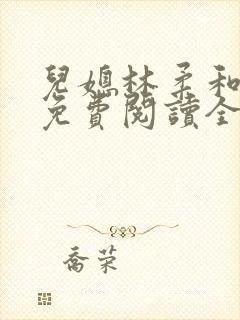 兒媳林柔和
免費閱讀全
喬榮